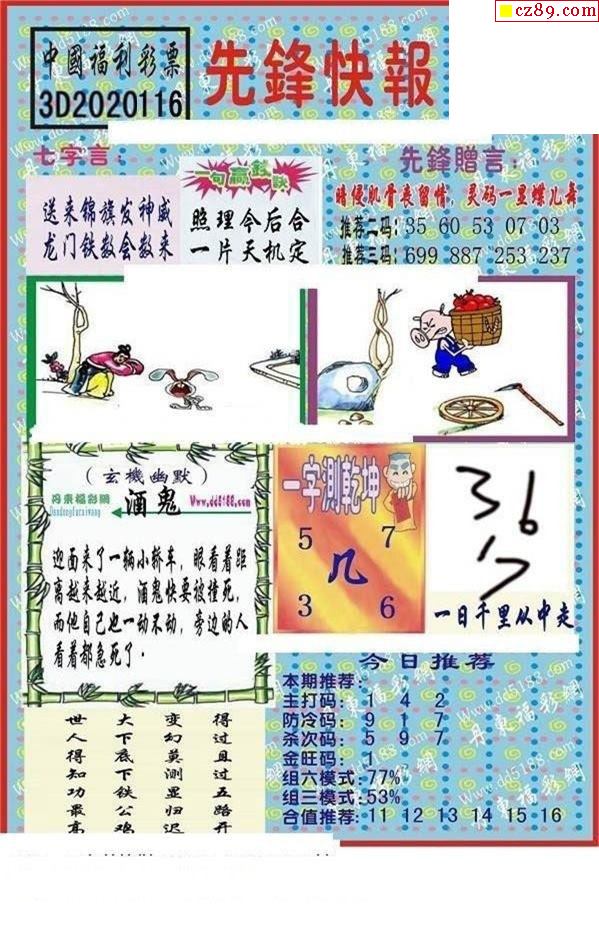 cz89.com
中國福利彩票
3D2020116
先鋒快報
七字言：
送来锦旗发神威
龙门铁数会数来
一句赢金诀
照理今后合
一片天机定
先鋒贈言：
暗侵肌骨丧留情，灵码一显蝶儿舞
推荐二码：35 60 53 07 03
推荐三码：699 887 253 237
（玄機幽默）
丹東福彩網
Dandongfucaiwang
酒鬼
Www.dd5188.com
迎面来了一辆小轿车，眼看着距
离越来越近，酒鬼快要被撞死，
而他自己也一动不动，旁边的人
看着都急死了。
一字测乾坤
5 7
几
3 6
36
17
一日千里从中走
今日推荐
本期推荐：
主打码：1 4 2
防冷码：9 1 7
杀次码：5 9 7
金旺码：1
组六模式：77%
组三模式：53%
合值推荐：11 12 13 14 15 16
世 大 变 得
人 下 幻 过
得 底 莫 且
知 下 测 过
功 铁 显 五
最 公 归 路
高 鸡 迟 开